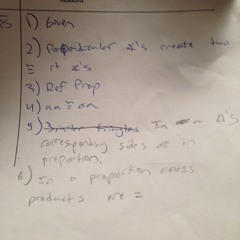 1) Given
2) Perpendicular ∡'s create two
≅ rt ∡'s
3) Ref Prop
4) aa ≅ aa
5) In ~ Δ's
corresponding sides are in
proportion.
6) In a proportion cross
products are =